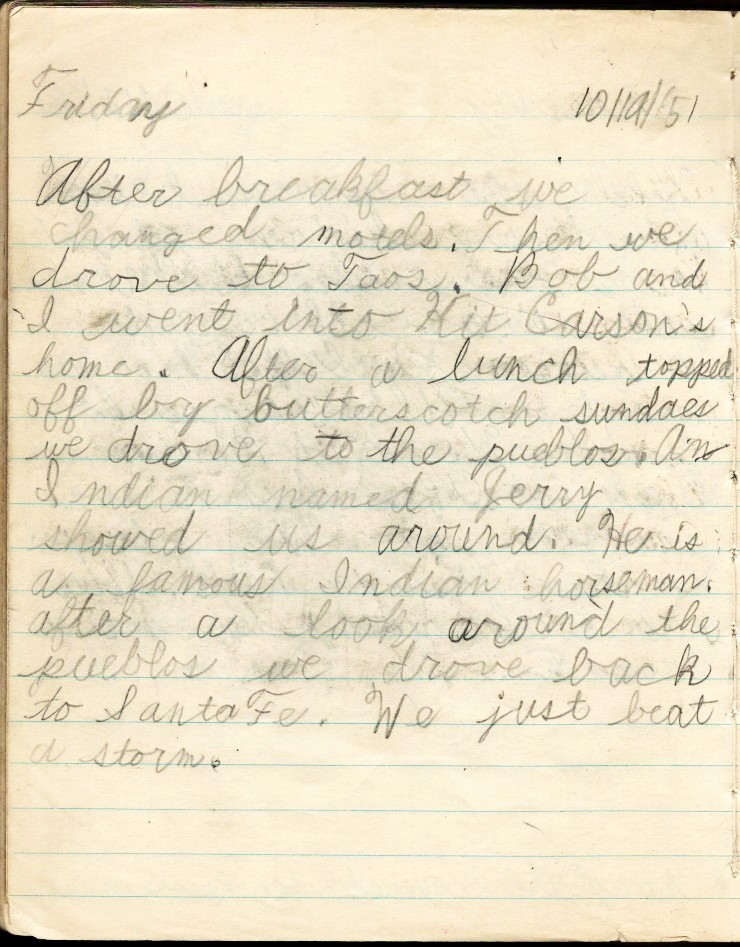 Friday 10/19/51
After breakfast we
changed motels. Then we
drove to Taos. Bob and
I went into Kit Carson's
home. After a lunch topped
off by butterscotch sundaes
we drove to the pueblos. An
Indian named Jerry
showed us around. He is
a famous Indian horseman.
after a look around the
pueblos we drove back
to Santa Fe. We just beat
a storm.